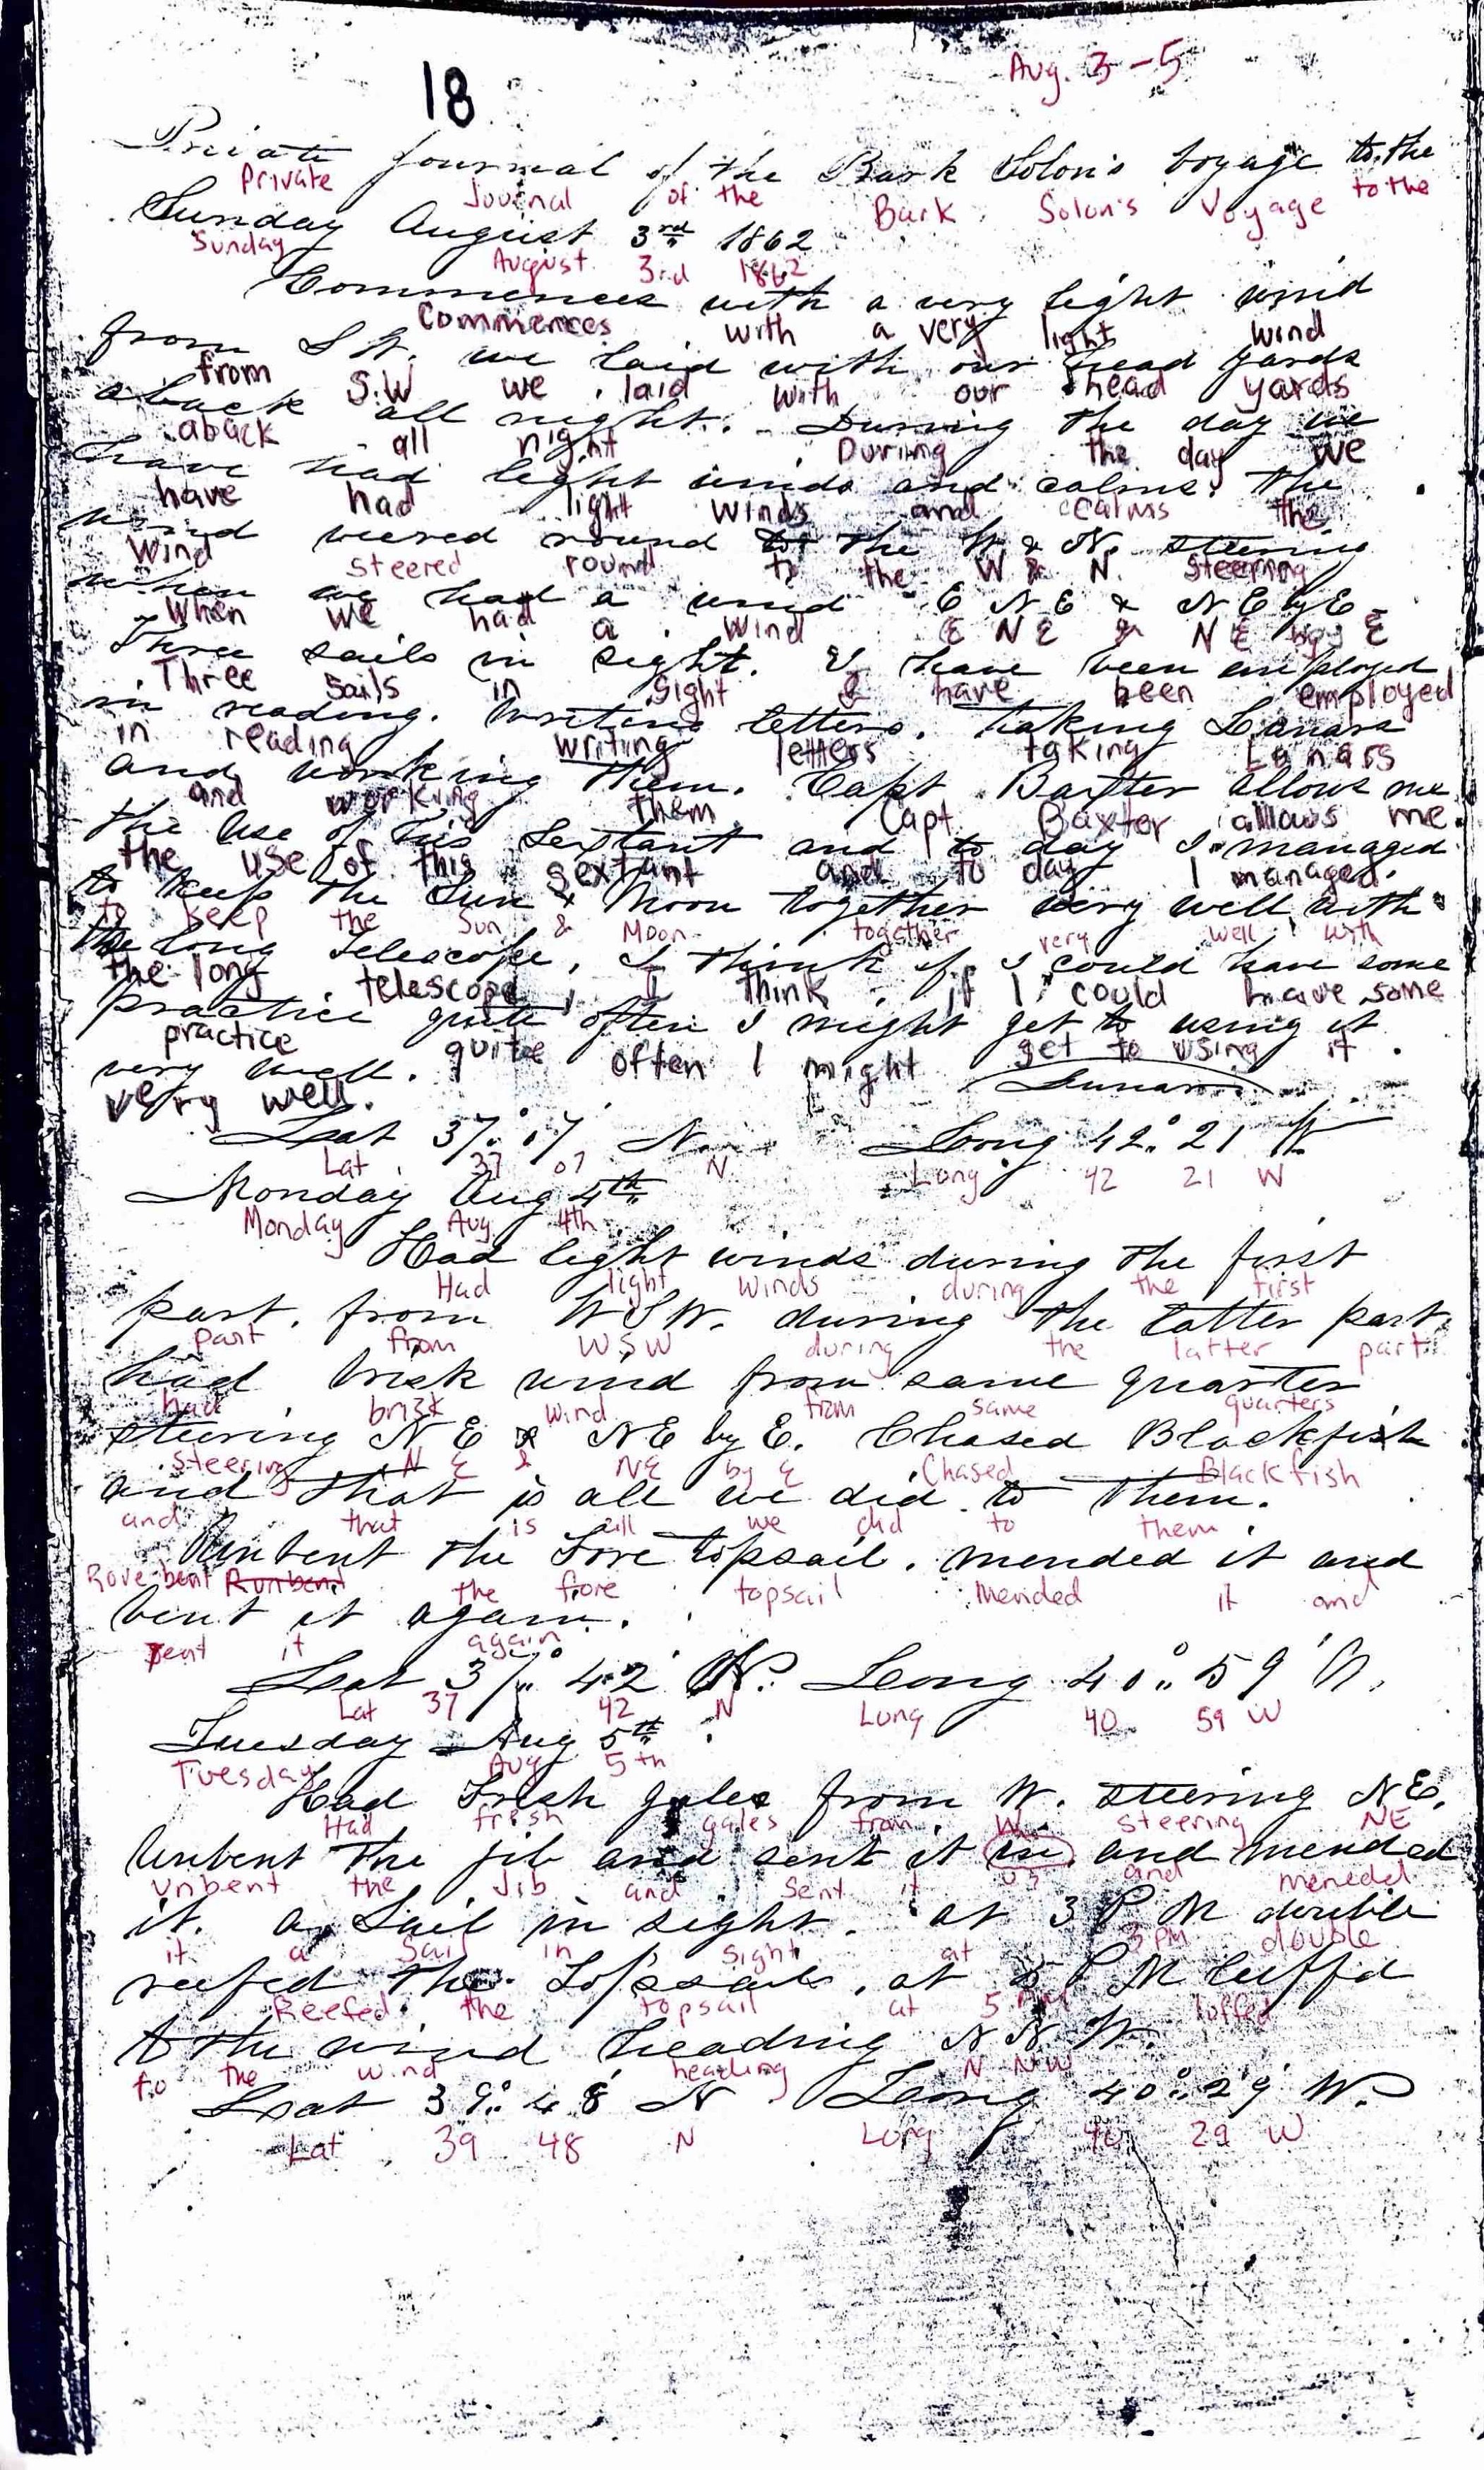 Aug. 3-5
18
Private Journal of the Bark Solon's Voyage to the
Private Journal of the Bark Solon's Voyage to the
Sunday August 3rd 1862
Sunday August 3rd 1862
Commences with a very light wind
Commences with a very light wind
from S W. we laid with our head yards
from S.W we laid with our head yards
aback all night. During the day we
aback all night During the day we
have had light winds and calms. the
have had light winds and calms the
wind veered round to the W & N. steering
Wind steered round to the W & N. steering
when we had a wind E N E & N E by E
when we had a wind E N E & N E by E
Three sails in sight. I have been employed
Three Sails in sight I have been employed
in reading. writing letters. taking Lunars
in reading writing letters taking Lunars
and working them. Capt Baxter allows me
and working them Capt. Baxter allows me.
the use of his Sextant and to day I managed
the use of this sextant and to day I managed.
to keep the Sun & Moon together very well with
to keep the Sun & Moon together very well with
the long telescope, I think if I could have some
the long telescope, I think if I could have some
practice quite often I might get to using it
practice quite often I might get to using it
very well.
very well.
Lunar
Lat 37° 07 N. Long 42° 21 W
Lat 37 07 N Long 42 21 W
Monday Aug 4th
Monday Aug 4th
Had light winds during the first
Had light winds during the first
part. from W S W. during the latter part
part from WSW during the latter part
had brisk wind from same quarter
had brisk wind from same quarters
steering N E & N E by E. Chased Blackfish
Steering N E & NE by E Chased Blackfish
and that is all we did to them.
and that is all we did to them
Unbent the Fore topsail. mended it and
Rove bent Runbent the fore topsail Mended it and
bent it again.
sent it again
Lat 37° 42' N. Long 40° 59' W.
Lat 37 42 N Long 40 59 W
Tuesday Aug 5th
Tuesday Aug 5th
Had Fresh gales from W. steering N E.
Had fresh gales from W. steering NE
Unbent the jib and sent it in and mended
Unbent the Jib and sent it us and menedd
it. a Sail in sight. at 3 P M double
it a sail in sight at 3 PM double
reefed the Topsails. at 5 P M luffd
Reefed the topsail at 5 PM loffed
to the wind heading N N W.
to the wind heading N NW
Lat 39° 48' N Long 40° 29' W.
Lat 39 48 N Long 40 29 W